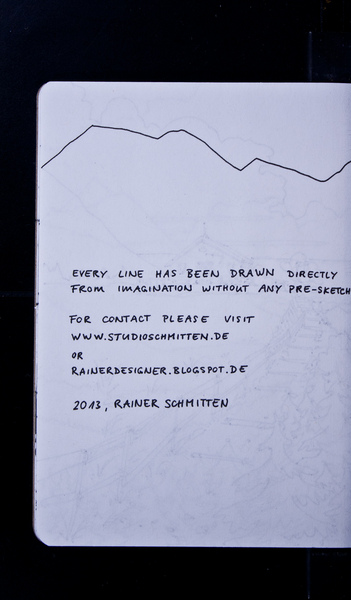 EVERY LINE HAS BEEN DRAWN DIRECTLY
FROM IMAGINATION WITHOUT ANY PRE-SKETCH
FOR CONTACT PLEASE VISIT
WWW.STUDIOSCHMITTEN.DE
OR
RAINERDESIGNER.BLOGSPOT.DE
2013, RAINER SCHMITTEN